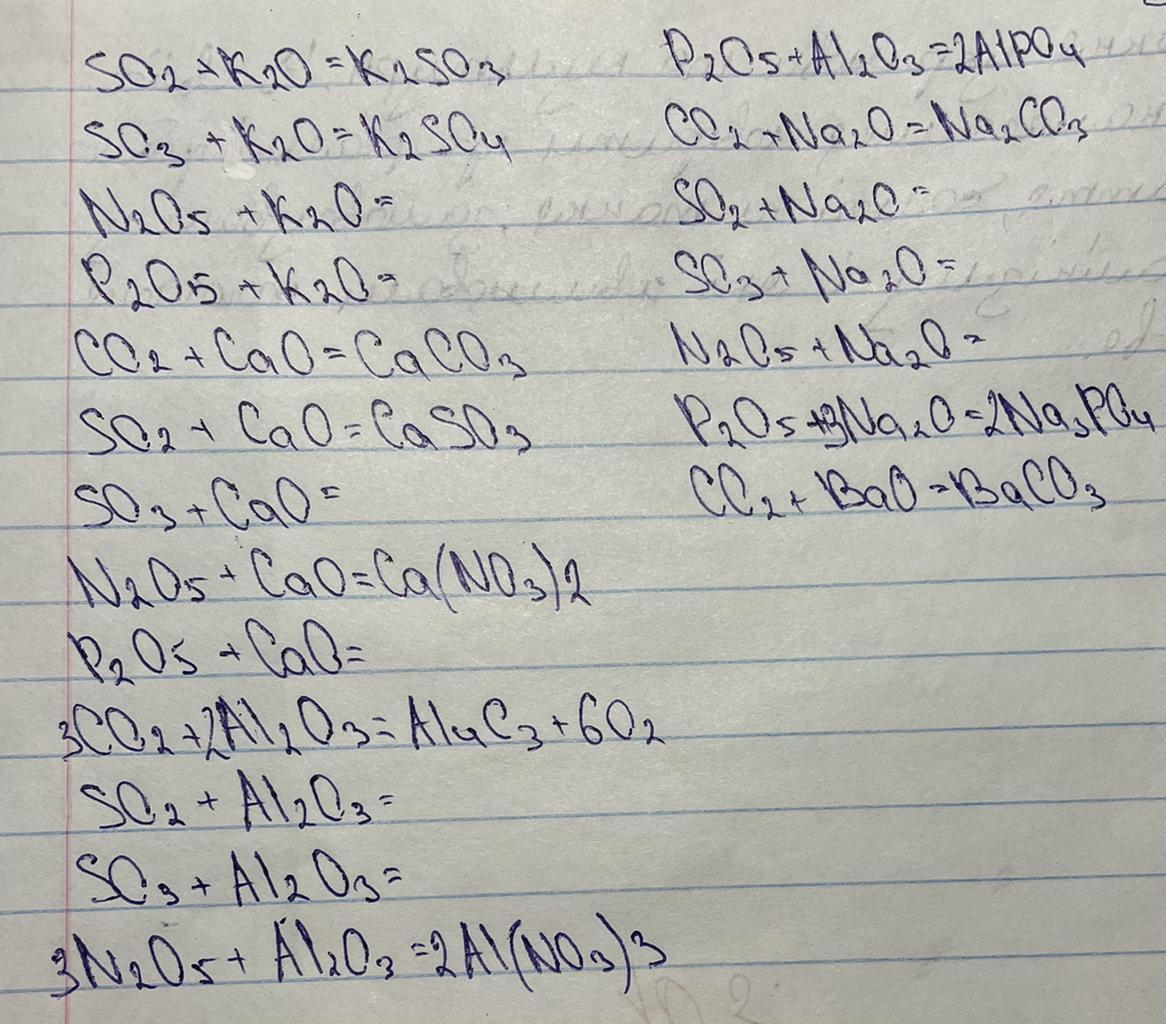 SO2 + K2O = K2SO3
SO3 + K2O = K2SO4
N2O5 + K2O =
P2O5 + K2O =
CO2 + CaO = CaCO3
SO2 + CaO = CaSO3
SO3 + CaO =
N2O5 + CaO = Ca(NO3)2
P2O5 + CaO =
3CO2 + 2Al2O3 = Al4C3 + 6O2
SO2 + Al2O3 =
SO3 + Al2O3 =
3N2O5 + Al2O3 = 2Al(NO3)3
P2O5 + Al2O3 = 2AlPO4
CO2 + Na2O = Na2CO3
SO2 + Na2O =
SO3 + Na2O =
N2O5 + Na2O =
P2O5 + 3Na2O = 2Na3PO4
CO2 + BaO = BaCO3